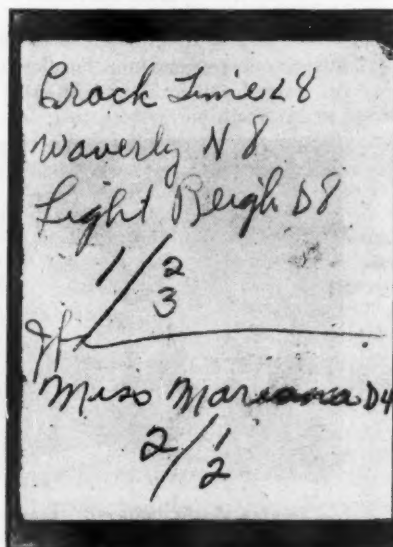 Crack Time L8
Waverly N 8
Light Reigh D8
1/2
3
If
Miss Mariana D4
2/1
2